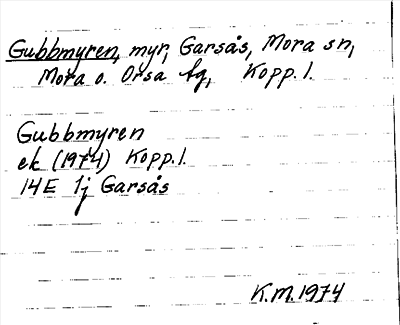 Gubbmyren, myr, Garsås, Mora sn,
Mora o. Orsa tg, Kopp. l.
Gubbmyren
ek (1974) Kopp. l.
14E 1j Garsås
K.M. 1974